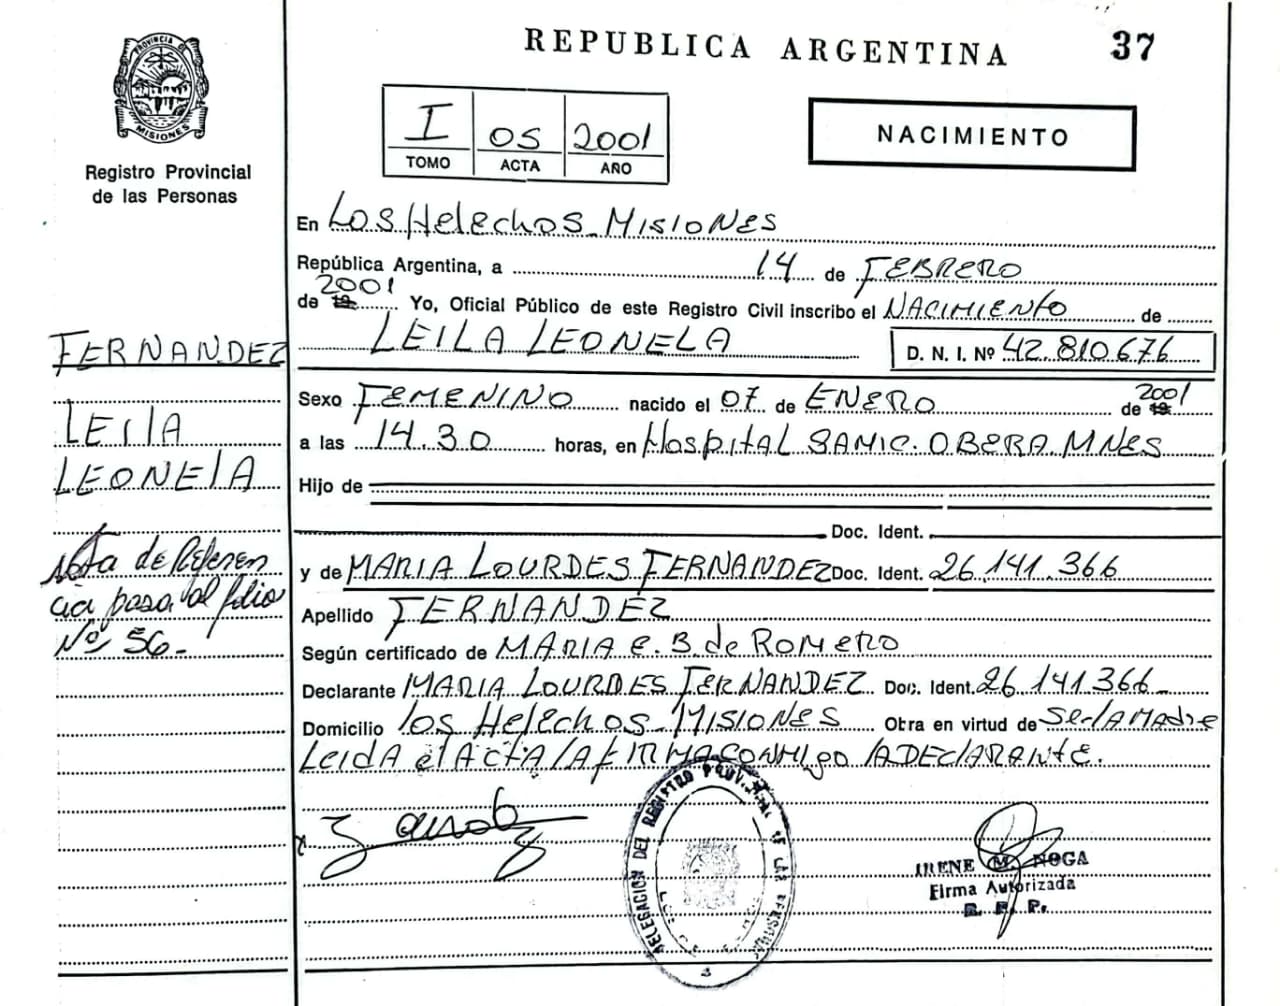 REPUBLICA ARGENTINA 37
PROVINCIA DE
MISIONES
Registro Provincial
de las Personas
I 05 2001
TOMO ACTA AÑO
NACIMIENTO
En Los Helechos Misiones
República Argentina, a 14 de FEBRERO
2001
de 19 Yo, Oficial Público de este Registro Civil inscribo el NACIMIENTO de
LEILA LEONELA D. N. I. Nº 42.810676
Sexo FEMENINO nacido el 07 de ENERO de 19 2001
a las 14.30 horas, en Hospital SAMIC. OBERA. MNES
Hijo de
Doc. Ident.
y de MARIA LOURDES FERNANDEZ Doc. Ident. 26.141.366
Apellido FERNANDEZ
Según certificado de MARIA E. B. de ROMERO
Declarante MARIA LOURDES FERNANDEZ Doc. Ident. 26.141.366
Domicilio Los Helechos - MISIONES Otra en virtud de Ser la Madre
Leida el Acta la firma conmigo la Declarante.
FERNANDEZ
LEILA
LEONELA
Nota de Referen
cia pasa al folio
Nº 56.-
DELEGACION DEL REGISTRO PROVINCIAL DE LAS PERSONAS
IRENE M. NOGA
Firma Autorizada
R. P. P.